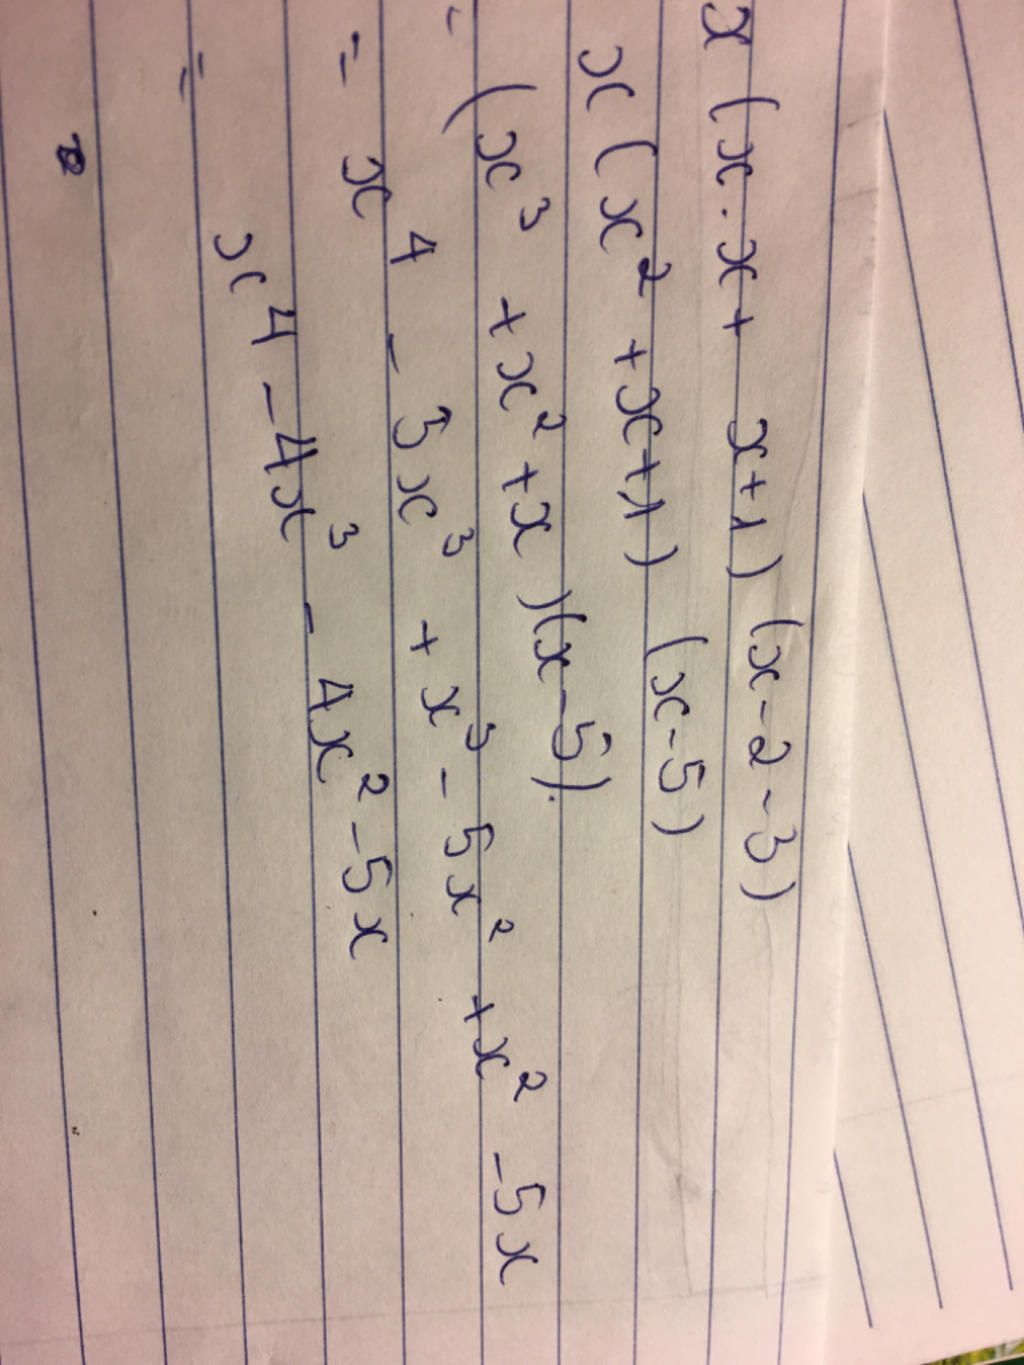 x (x . x + x+1) (x-2-3)
x (x² +x+1) (x-5)
- (x³ +x² +x)(x-5).
= x⁴ - 5x³ + x³ - 5x² +x² -5x
= x⁴ -4x³ - 4x² -5x